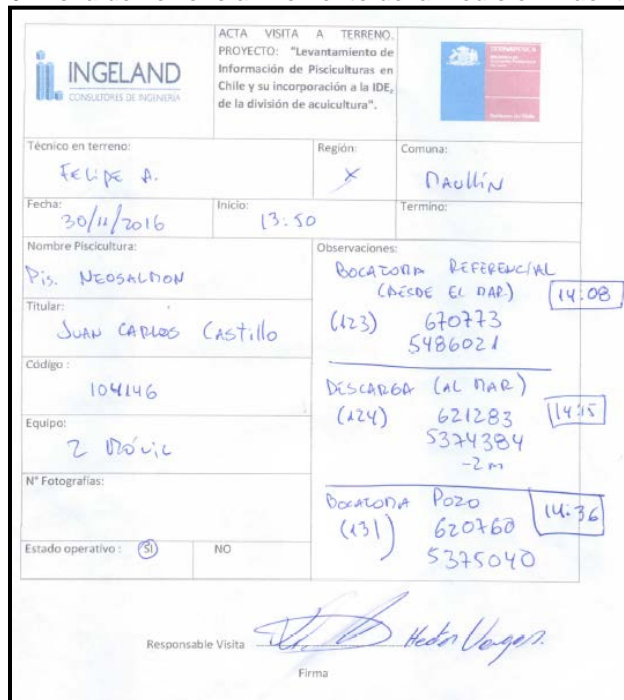 INGELAND
CONSULTORES DE INGENIERÍA
ACTA VISITA A TERRENO.
PROYECTO: "Levantamiento de
Información de Pisciculturas en
Chile y su incorporación a la IDE,
de la división de acuicultura".
Técnico en terreno:
FELIPE A.
Región:
X
Comuna:
MAULLÍN
Fecha:
30/11/2016
Inicio:
13:50
Termino:
Nombre Piscicultura:
Pis. NEOSALMON
Titular:
JUAN CARLOS CASTILLO
Código :
104146
Equipo:
2 MÓVIL
N° Fotografías:
Estado operativo : SI NO
Observaciones:
BOCATOMA REFERENCIAL
(DESDE EL MAR) 14:08
(123) 670773
5486021
DESCARGA (AL MAR)
(124) 621283 14:15
5374384
-2 m
BOCATOMA POZO 14:36
(131) 620760
5375040
Responsable Visita
Hector Vargas.
Firma